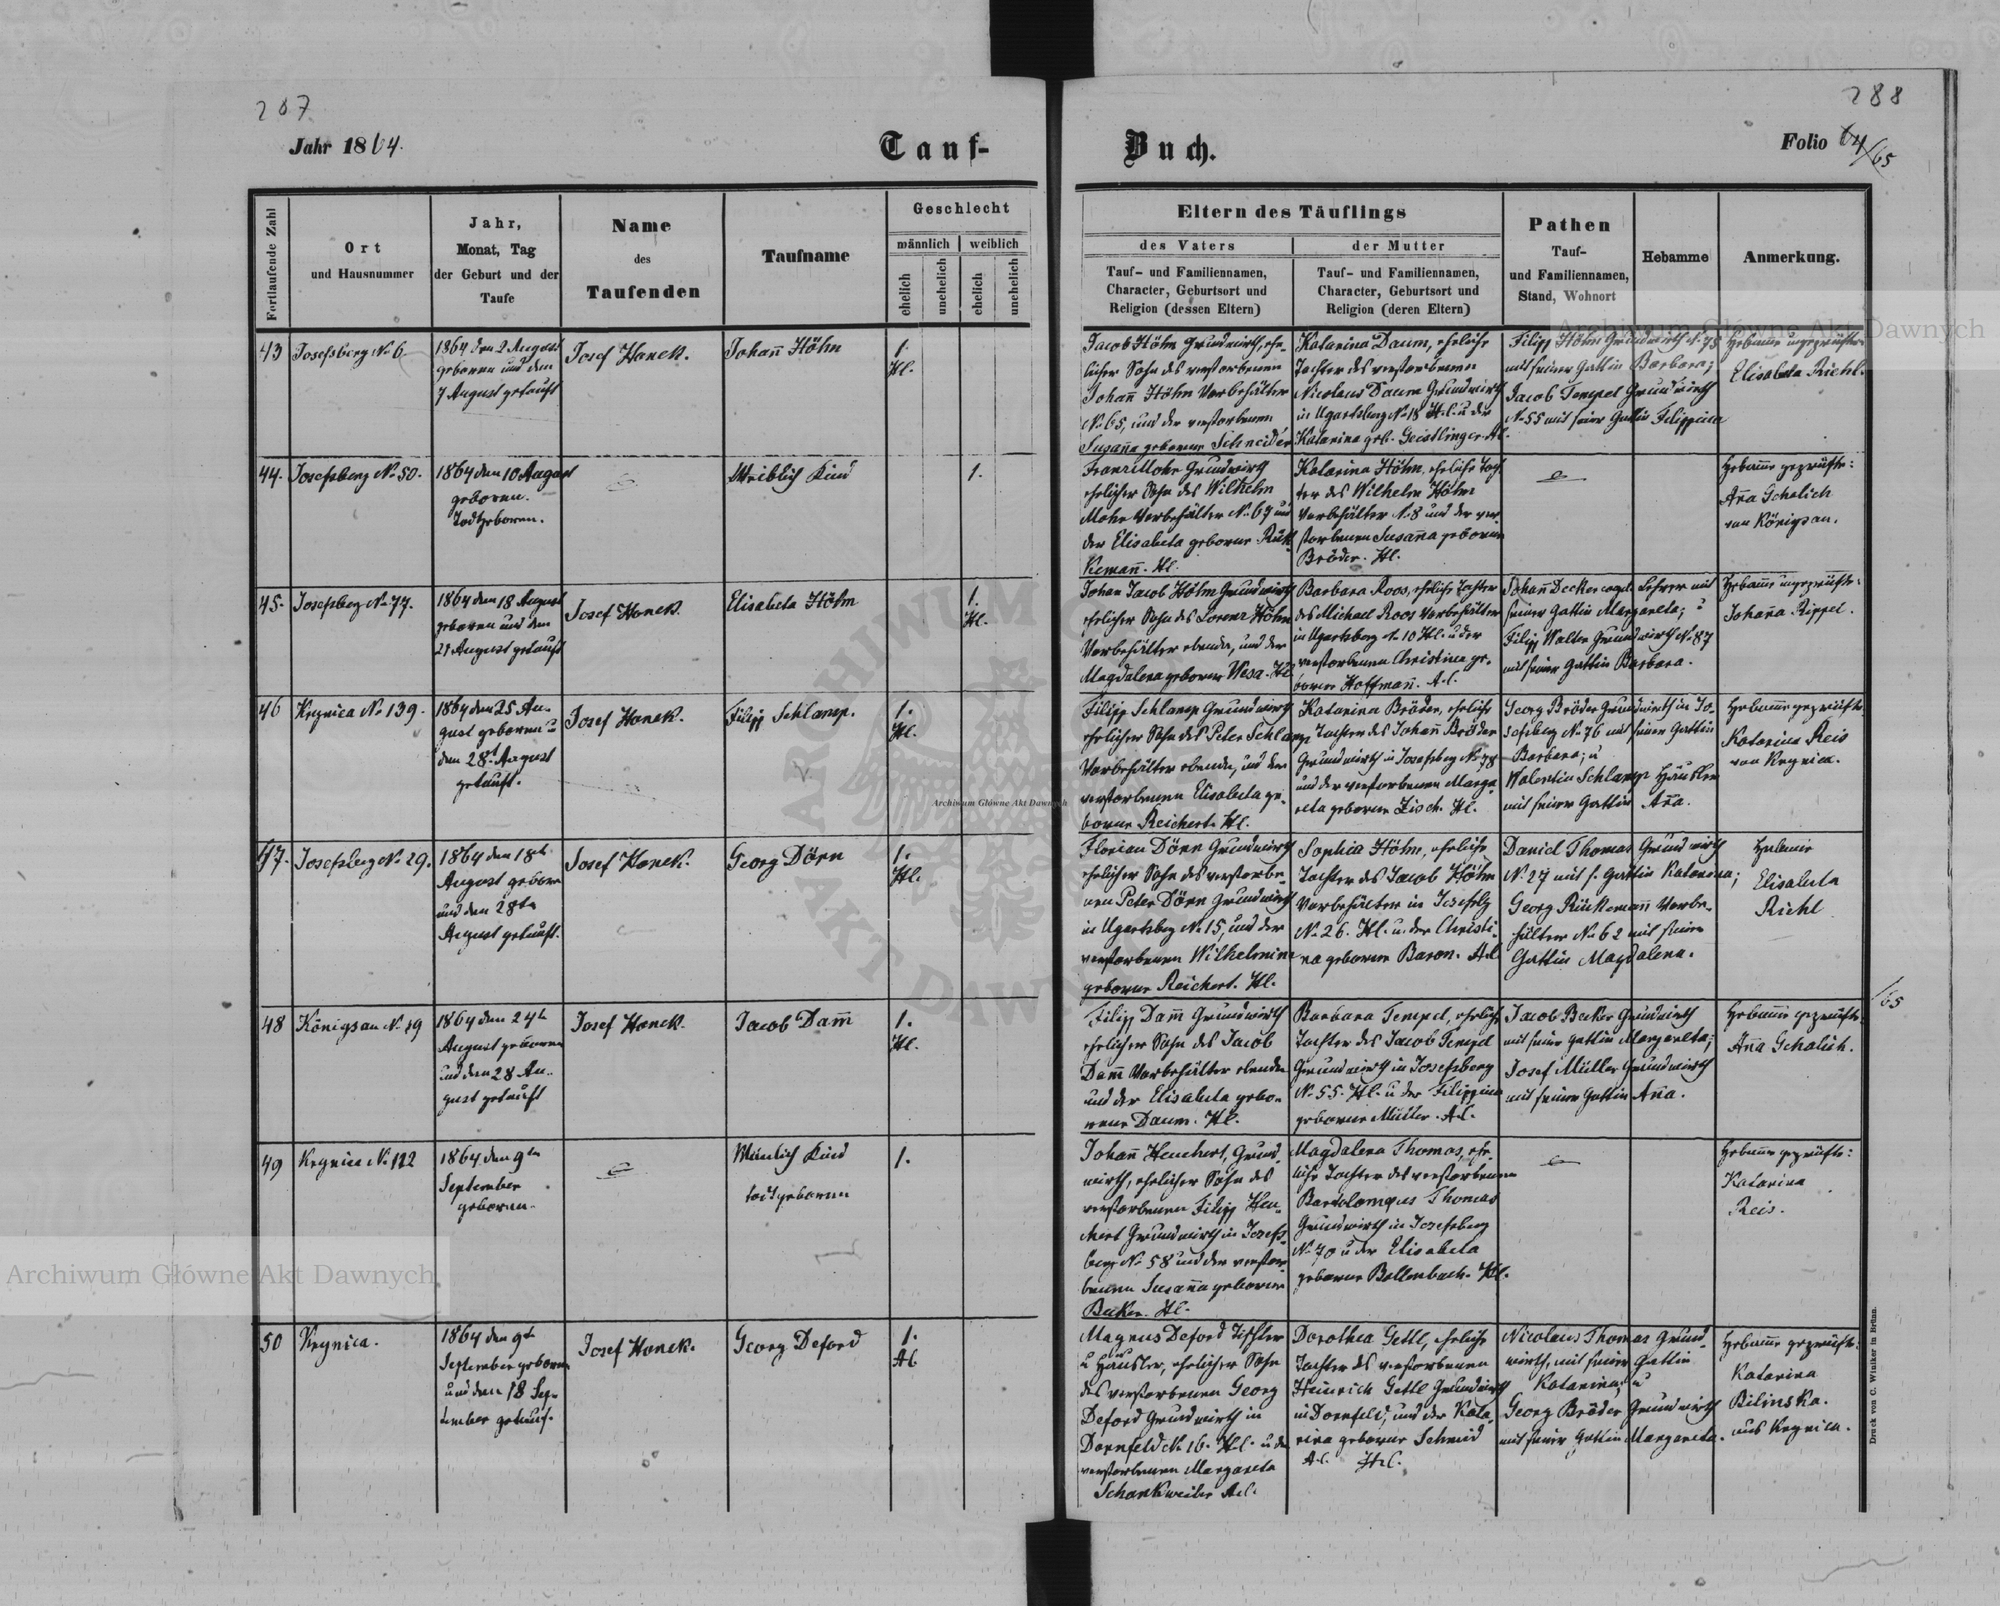 207
288
Jahr 1864.
Tauf-
Buch.
Folio 64/65
Fortlaufende Zahl
Ort
und Hausnummer
Jahr,
Monat, Tag
der Geburt und der
Taufe
Name
des
Taufenden
Taufname
Geschlecht
männlich
weiblich
ehelich
unehelich
ehelich
unehelich
Eltern des Täuflings
des Vaters
der Mutter
Tauf- und Familiennamen,
Character, Geburtsort und
Religion (dessen Eltern)
Tauf- und Familiennamen,
Character, Geburtsort und
Religion (deren Eltern)
Pathen
Tauf-
und Familiennamen,
Stand, Wohnort
Hebamme
Anmerkung.
43
Josefsberg No 6
1864 den 2 August
geboren und den
7 August getauft
Josef Hanek.
Johañ Höhn
1.
Hl.
Jacob Höhn Grundwirth, ehe-
licher Sohn des verstorbenen
Johañ Höhn Vorbehälter
No 65, und der verstorbenen
Susaña geborene Schneider
Katarina Daum, eheliche
Tochter des verstorbenen
Nicolaus Daum Grundwirth
in Ugartsberg No 18 Hl. u der
Katarina geb. Geistlinger Al.
Filipp Höhn Grundwirth No 75
mit seiner Gattin Barbara;
Jacob Tempel Grundwirth
No 55 mit seiner Gattin Filippina
Hebam̃e ungeprüfte
Elisabeta Riehl.
44.
Josefsberg No 50.
1864 den 10 August
geboren.
Todtgeboren.
Weiblich Kind
1.
Franz Mohr Grundwirth
ehelicher Sohn des Wilhelm
Mohr Vorbehälter No 67 und
der Elisabeta geborene Rük-
kemañ. Hl.
Katarina Höhn, eheliche Toch-
ter des Wilhelm Höhn
Vorbehälter No 8 und der ver-
storbenen Susaña geborene
Bröder. Hl.
Hebam̃e geprüfte:
Aña Schalich
von Königsau.
45.
Josefsberg No 77.
1864 den 18 August
geboren und den
21 August getauft
Josef Hanek.
Elisabeta Höhn
1.
Hl.
Johan Jacob Höhn Grundwirth
ehelicher Sohn des Lorenz Höhn
Vorbehälter ebenda, und der
Magdalena geborene Wesa. Hl.
Barbara Roos, eheliche Tochter
des Michael Roos Vorbehälter
in Ugartsberg No 10 Hl. u der
verstorbenen Christina ge-
borene Hoffmañ. A.C.
Johañ Decker evgel. Lehrer mit
seiner Gattin Margareta; u
Filipp Walter Grundwirth No 87
mit seiner Gattin Barbara.
Hebam̃e ungeprüfte:
Johaña Rippel.
46
Krynica No 139.
1864 den 25 Au-
gust geboren u
den 28t August
getauft.
Josef Hanek.
Filipp Schlamp.
1.
Hl.
Filipp Schlamp Grundwirth
ehelicher Sohn des Peter Schlamp
Vorbehälter ebenda, und der
verstorbenen Elisabeta ge-
borene Reichert. Hl.
Katarina Bröder, eheliche
Tochter des Johañ Bröder
Grundwirth in Josefsberg No 78
und der verstorbenen Marga-
reta geborene Zisch. Hl.
Georg Bröder Grundwirth in Jo-
sefsberg No 76 mit seiner Gattin
Barbara; u
Valentin Schlamp Häusler
mit seiner Gattin Aña.
Hebam̃e geprüfte
Katarina Reis
von Krynica.
47.
Josefsberg No 29.
1864 den 18t
August geboren
und den 28ten
August getauft.
Josef Hanek.
Georg Dörn
1.
Hl.
Florian Dörn Grundwirth
ehelicher Sohn des verstorbe-
nen Peter Dörn Grundwirth
in Ugartsberg No 15, und der
verstorbenen Wilhelmine
geborene Reichert. Hl.
Sophia Höhn, eheliche
Tochter des Jacob Höhn
Vorbehälter in Josefsbg
No 26. Hl. u. der Christi-
na geborene Baron. A.C.
Daniel Thomas Grundwirth
No 27 mit s. Gattin Katarina;
Georg Rückemañ Vorbe-
hälter No 62 mit seiner
Gattin Magdalena.
Hebame
Elisabeta
Riehl
/65
48
Königsau No 19
1864 den 24t
August geboren
und den 28 Au-
gust getauft
Josef Hanek.
Jacob Dam̃
1.
Hl.
Filipp Dam̃ Grundwirth
ehelicher Sohn des Jacob
Dam̃ Vorbehälter ebenda
und der Elisabeta gebo-
rene Daum. Hl.
Barbara Tempel, eheliche
Tochter des Jacob Tempel
Grundwirth in Josefsberg
No 55. Hl. u der Filippina
geborene Müller. A.C.
Jacob Beker Grundwirth
mit seiner Gattin Margareta;
Josef Müller Grundwirth
mit seiner Gattin Aña.
Hebam̃e geprüfte
Aña Schalich.
49
Krynica No 112
1864 den 9ten
September
geboren.
Mänlich Kind
todtgeboren
1.
Johañ Heuchert, Grund-
wirth, ehelicher Sohn des
verstorbenen Filipp Heu-
chert Grundwirth in Josefs-
berg No 58 und der verstor-
benen Susaña geborene
Beker. Hl.
Magdalena Thomas, ehe-
liche Tochter des verstorbenen
Bartolomeus Thomas
Grundwirth in Josefsberg
No 70 u der Elisabeta
geborene Bollenbach. Hl.
Hebam̃e geprüfte:
Katarina
Reis.
50
Krynica.
1864 den 9t
September geboren
und den 18 Sep-
tember getauft.
Josef Hanek.
Georg Deford
1.
AC
Magnus Deford Tischler
u Häusler, ehelicher Sohn
des verstorbenen Georg
Deford Grundwirth in
Dornfeld No 16. Hl. u der
verstorbenen Margareta
Schankweiler A.C.
Dorothea Gettl, eheliche
Tochter des verstorbenen
Heinrich Gettl Grundwirth
in Dornfeld, und der Kata-
rina geborene Schmid
A.C. Hl.
Nicolaus Thomas Grund-
wirth, mit seiner Gattin
Katarina; u
Georg Bröder Grundwirth
mit seiner Gattin Margareta.
Hebam̃e geprüfte:
Katarina
Bilinska.
aus Krynica.
Druck von C. Winiker in Brünn.
Archiwum Główne Akt Dawnych
Archiwum Główne Akt Dawnych
Archiwum Główne Akt Dawnych
ARCHIWUM
AKT DAWNYCH